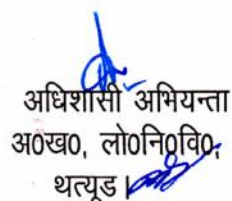 अधिशासी अभियन्ता
अ0ख0, लो0नि0वि0,
थत्यूड।